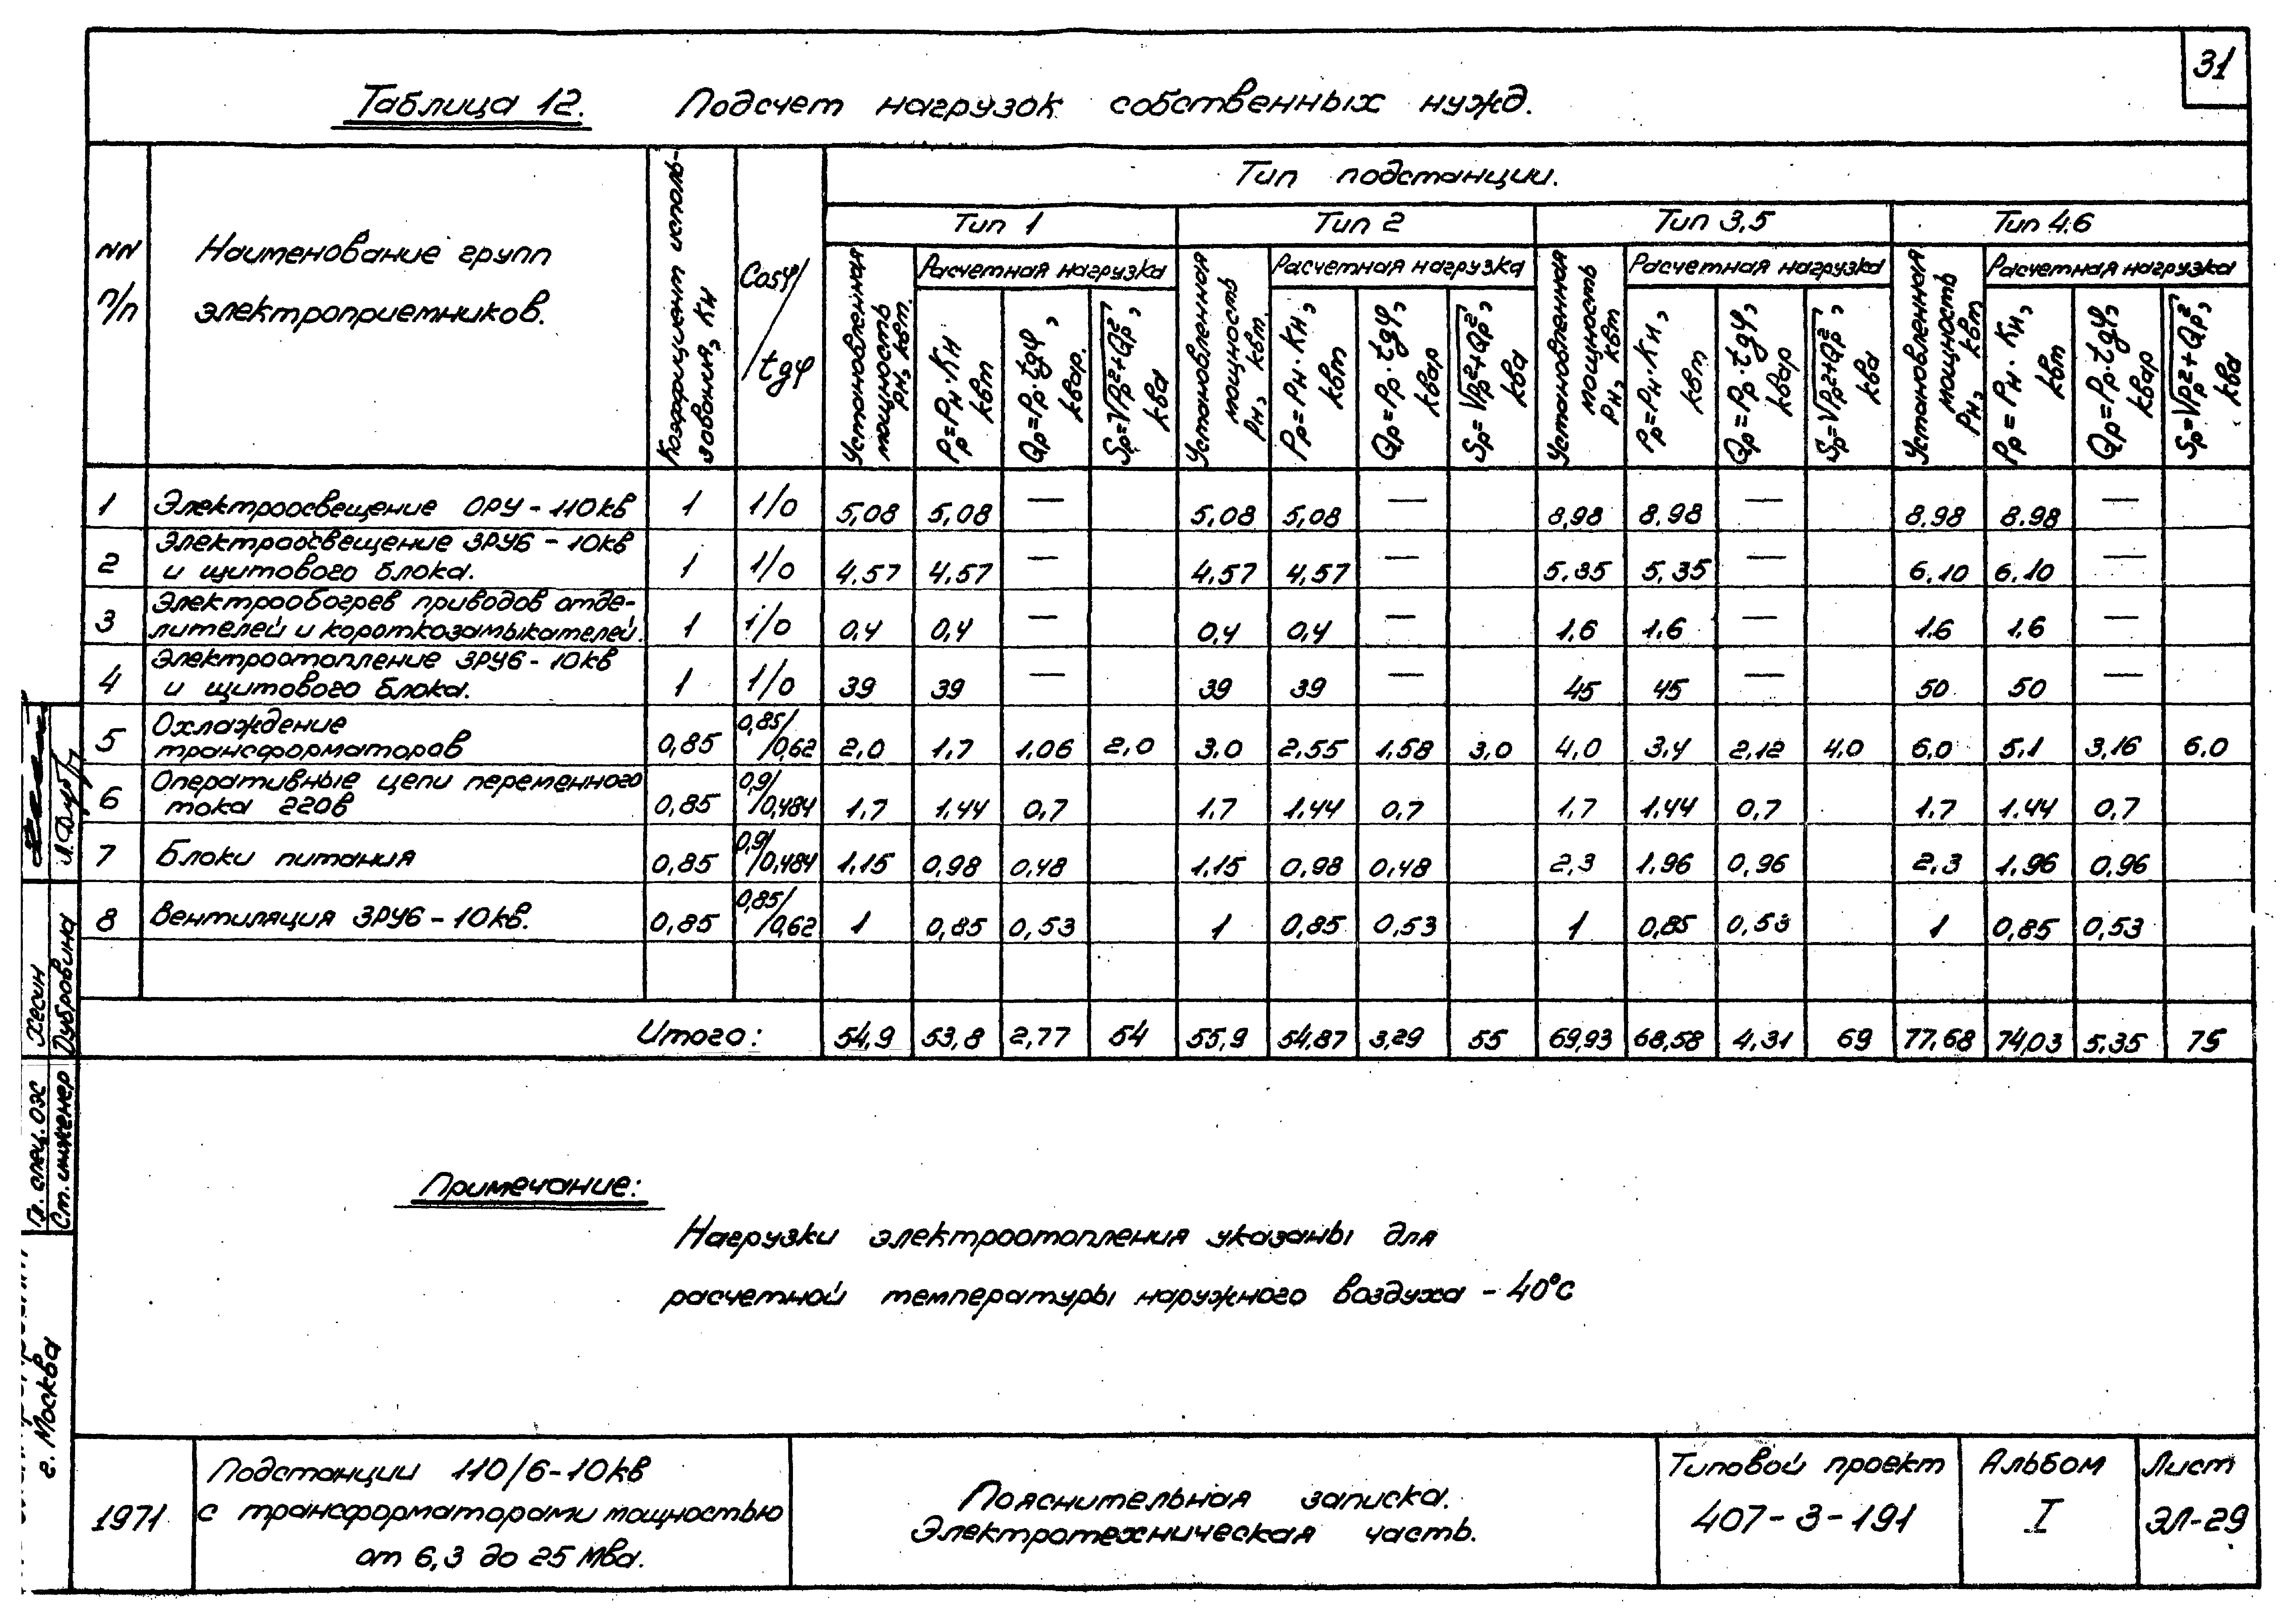 31
Таблица 12. Подсчет нагрузок собственных нужд.
NN п/п
Наименование групп электроприемников.
Коэффициент использования, Ки
Cosφ/tgφ
Тип подстанции.
Тип 1 Тип 2 Тип 3,5 Тип 4.6
Установленная мощность Рн, квт. Расчетная нагрузка Рр=Рн·Ки квт Qр=Рр·tgφ, квар. Sр=√Рр²+Qр², ква
Установленная мощность Рн, квт. Расчетная нагрузка Рр=Рн·Ки, квт Qр=Рр·tgφ, квар Sр=√Рр²+Qр², ква
Установленная мощность Рн, квт Расчетная нагрузка Рр=Рн·Ки, квт Qр=Рр·tgφ, квар Sр=√Рр²+Qр², ква
Установленная мощность Рн, квт Расчетная нагрузка Рр=Рн·Ки, квт Qр=Рр·tgφ, квар Sр=√Рр²+Qр², ква
1 Электроосвещение ОРУ-110кв 1 1/0 5,08 5,08 — 5,08 5,08 — 8,98 8,98 — 8.98 8.98 —
2 Электроосвещение ЗРУ6-10кв
и щитового блока. 1 1/0 4,57 4,57 — 4,57 4,57 — 5,35 5,35 — 6,10 6.10 —
3 Электрообогрев приводов отде-
лителей и короткозамыкателей. 1 1/0 0,4 0,4 — 0,4 0,4 — 1,6 1,6 — 1.6 1,6 —
4 Электроотопление ЗРУ6-10кв
и щитового блока. 1 1/0 39 39 — 39 39 — 45 45 — 50 50 —
5 Охлаждение
трансформаторов 0,85 0,85/0,62 2,0 1,7 1,06 2,0 3,0 2,55 1,58 3,0 4,0 3,4 2,12 4,0 6,0 5,1 3,16 6.0
6 Оперативные цепи переменного
тока 220в 0,85 0,9/0,484 1,7 1,44 0,7 1,7 1,44 0,7 1,7 1,44 0,7 1,7 1.44 0,7
7 Блоки питания 0,85 0,9/0,484 1,15 0,98 0,48 1,15 0,98 0,48 2,3 1,96 0,96 2,3 1,96 0,96
8 Вентиляция ЗРУ6-10кв. 0,85 0,85/0,62 1 0,85 0,53 1 0,85 0,53 1 0,85 0,53 1 0,85 0,53
Итого: 54,9 53,8 2,77 54 55,9 54,87 3,29 55 69,93 68,58 4,31 69 77,68 74,03 5.35 75
Примечание:
Нагрузки электроотопления указаны для
расчетной температуры наружного воздуха -40°С
Гл. спец. ОЭС Хесин
Ст. инженер Дубровина
г. Москва
1971
Подстанции 110/6-10кв
с трансформаторами мощностью
от 6,3 до 25 Мва.
Пояснительная записка.
Электротехническая часть.
Типовой проект
407-3-191
Альбом
I
Лист
ЭЛ-29